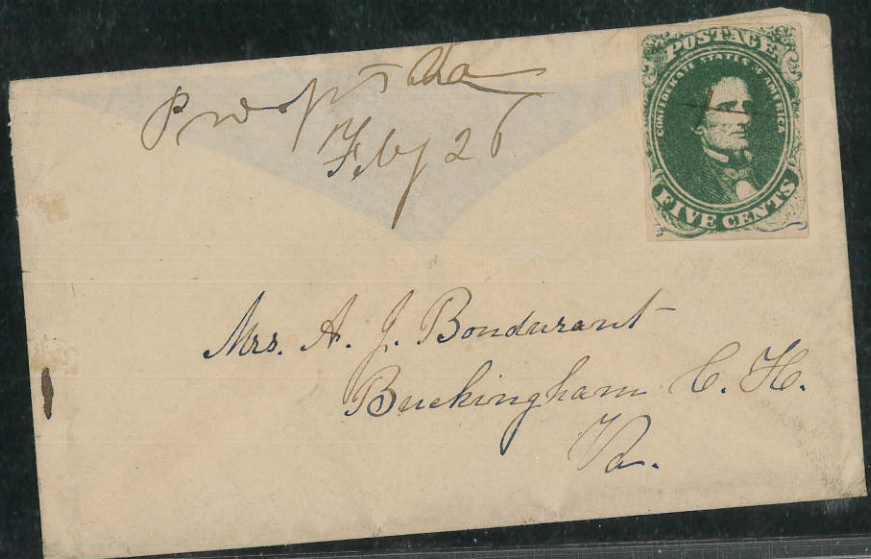 Feby 26
POSTAGE
CONFEDERATE STATES OF AMERICA
FIVE CENTS
Mrs. A. J. Bondurant
Buckingham C. H.
Va.